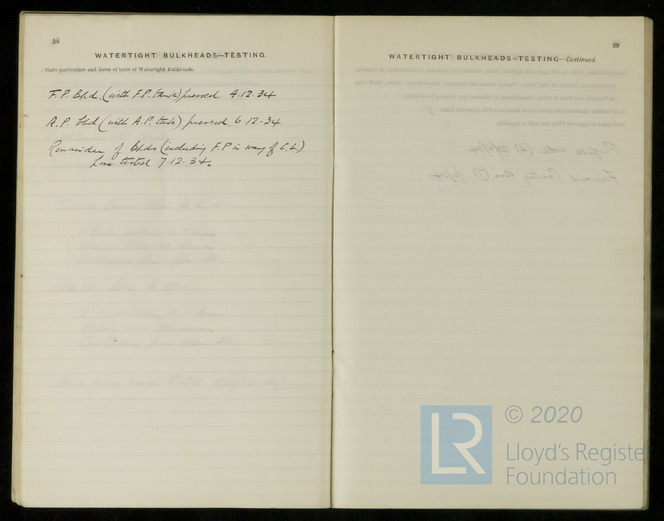 38
WATERTIGHT BULKHEADS—TESTING.
State particulars and dates of tests of Watertight Bulkheads.
F.P. Bhd. (with F.P. tank) pressed 4.12.34
A.P. Bhd (with A.P. tank) pressed 6.12.34
Remainder of Bhds (including F.P in way of C.L.)
hose tested 7.12.34.
39
WATERTIGHT BULKHEADS—TESTING—Continued.
LR
© 2020
Lloyd's Register
Foundation